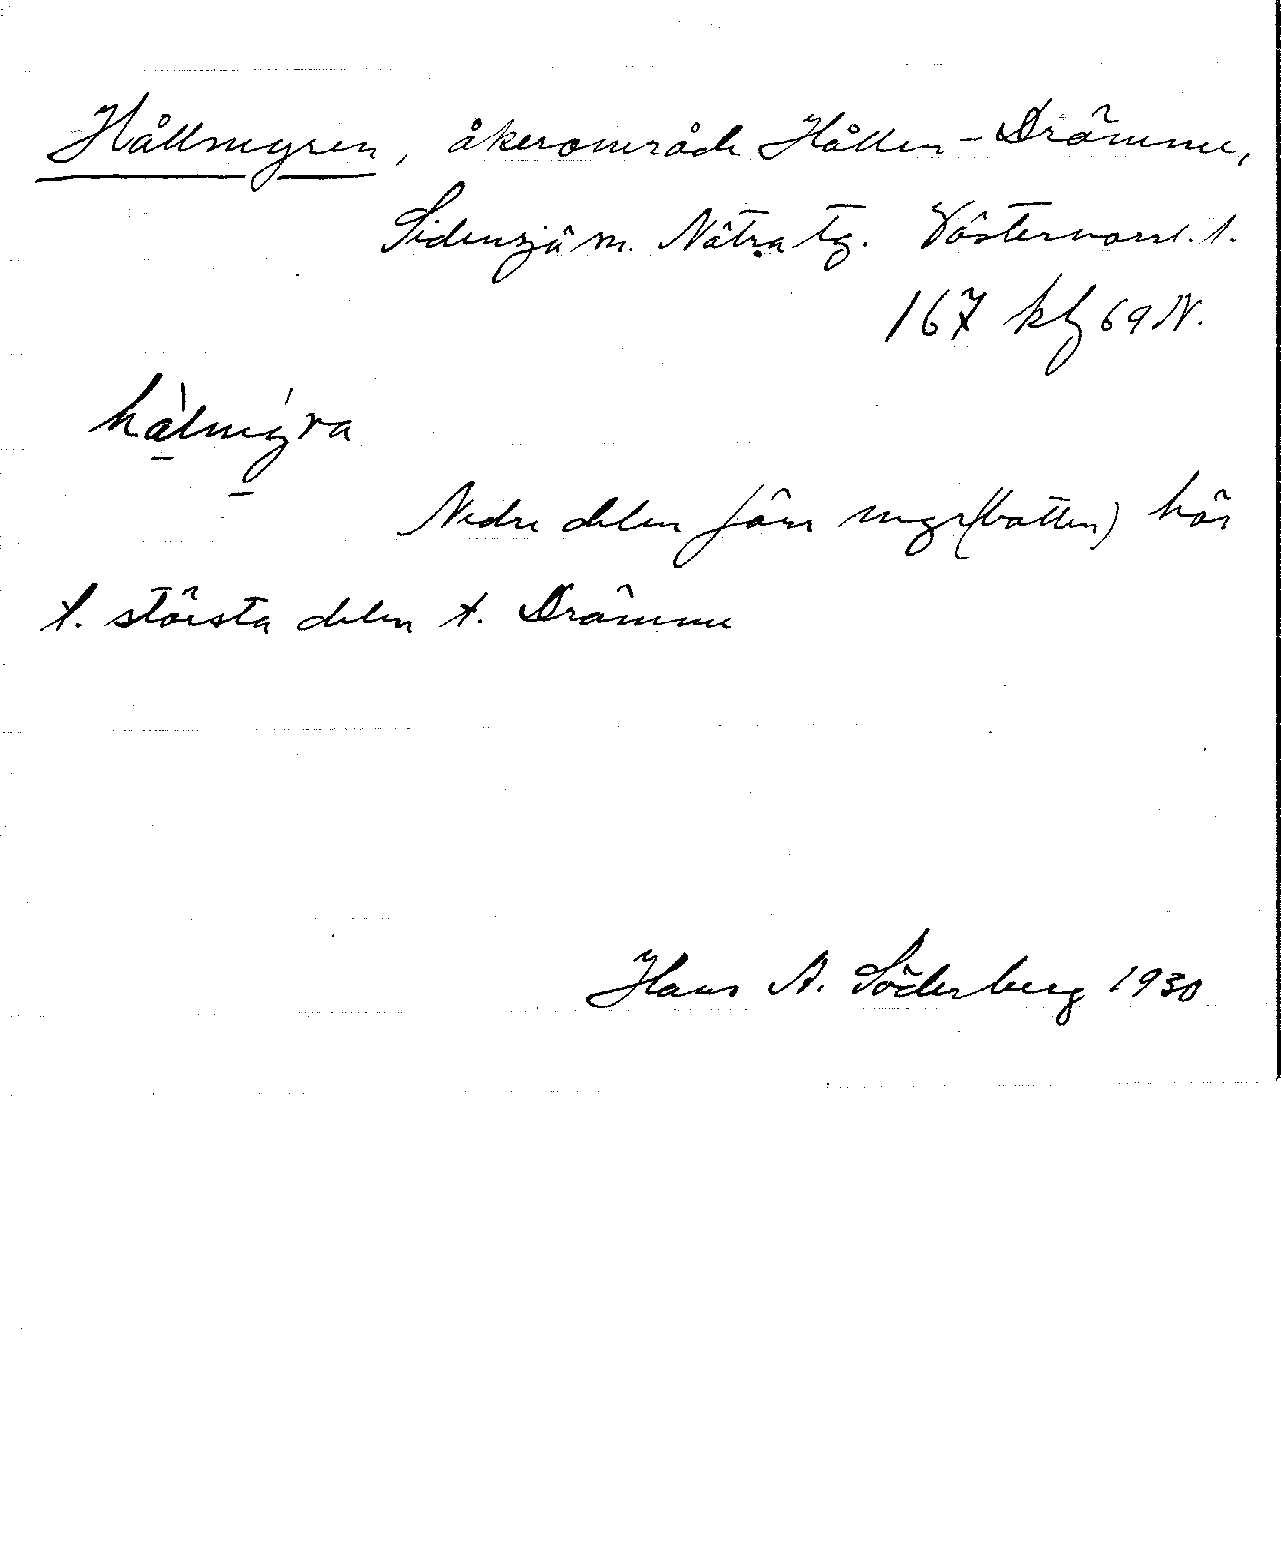 Hållmyren, åkerområde Hållen - Drömme,
Sidensjö sn. Nätra tg. Västernorrl. l.
167 kbj 69 N.
Nedre delen före myr (botten) hör
t. största delen t. Drömme
Hans A. Söderberg 1930